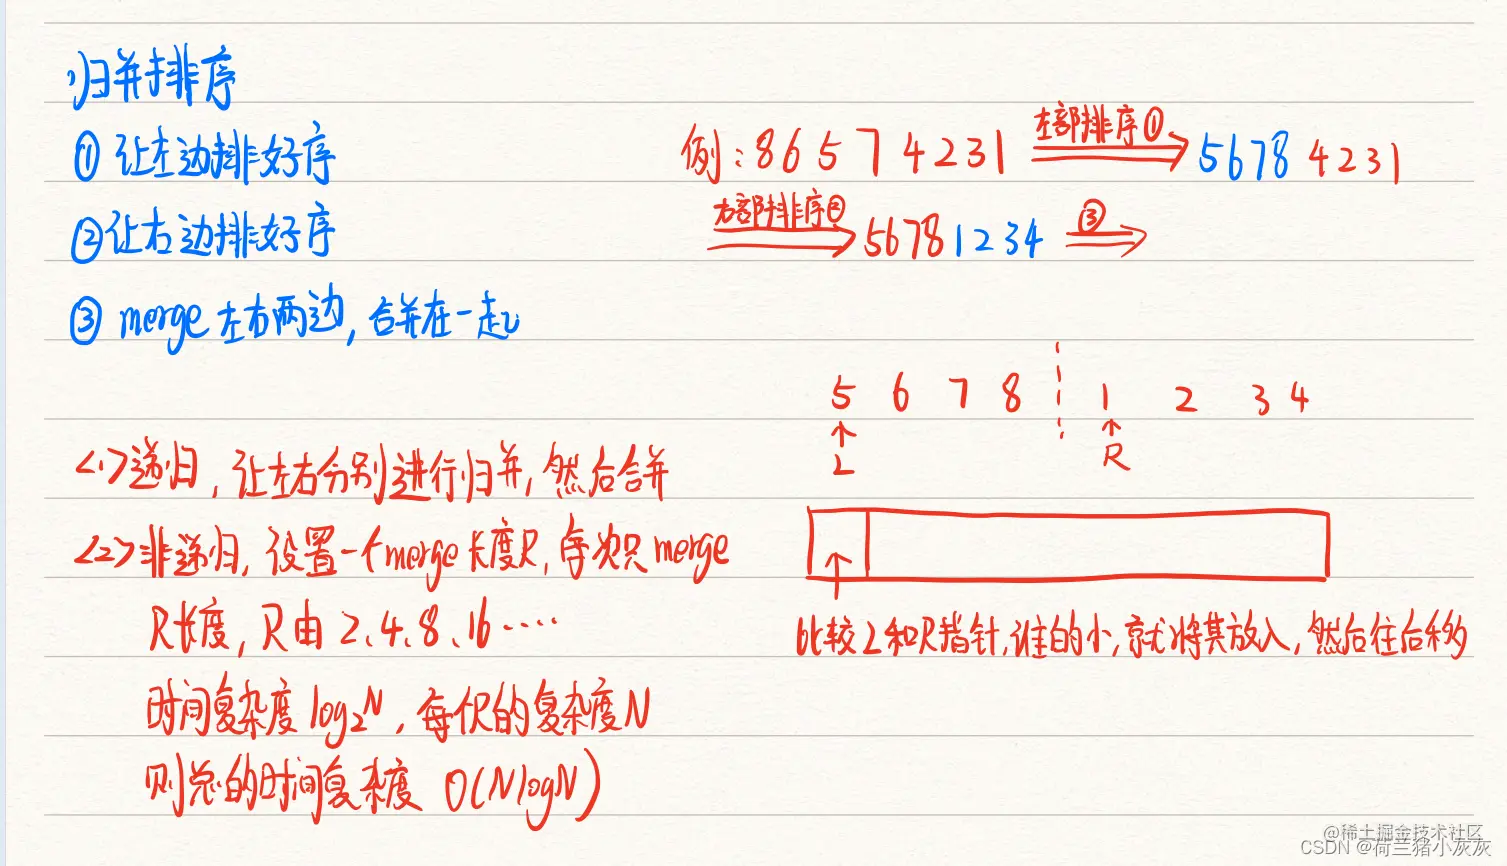 归并排序
① 让左边排好序
②让右边排好序
③ merge左右两边,合并在一起
例:8 6 5 7 4 2 3 1 左部排序① 5678 4231
右部排序② 5678 1234 ③
5 6 7 8 1 2 3 4
L R
比较L和R指针,谁的小,就将其放入,然后往后移
<1>递归,让左右分别进行归并,然后合并
<2>非递归,设置一个merge长度R,每次只merge
R长度,R由2、4、8、16····
时间复杂度log₂N,每次的复杂度N
则总的时间复杂度 O(NlogN)
@稀土掘金技术社区
CSDN @荷兰猪小灰灰